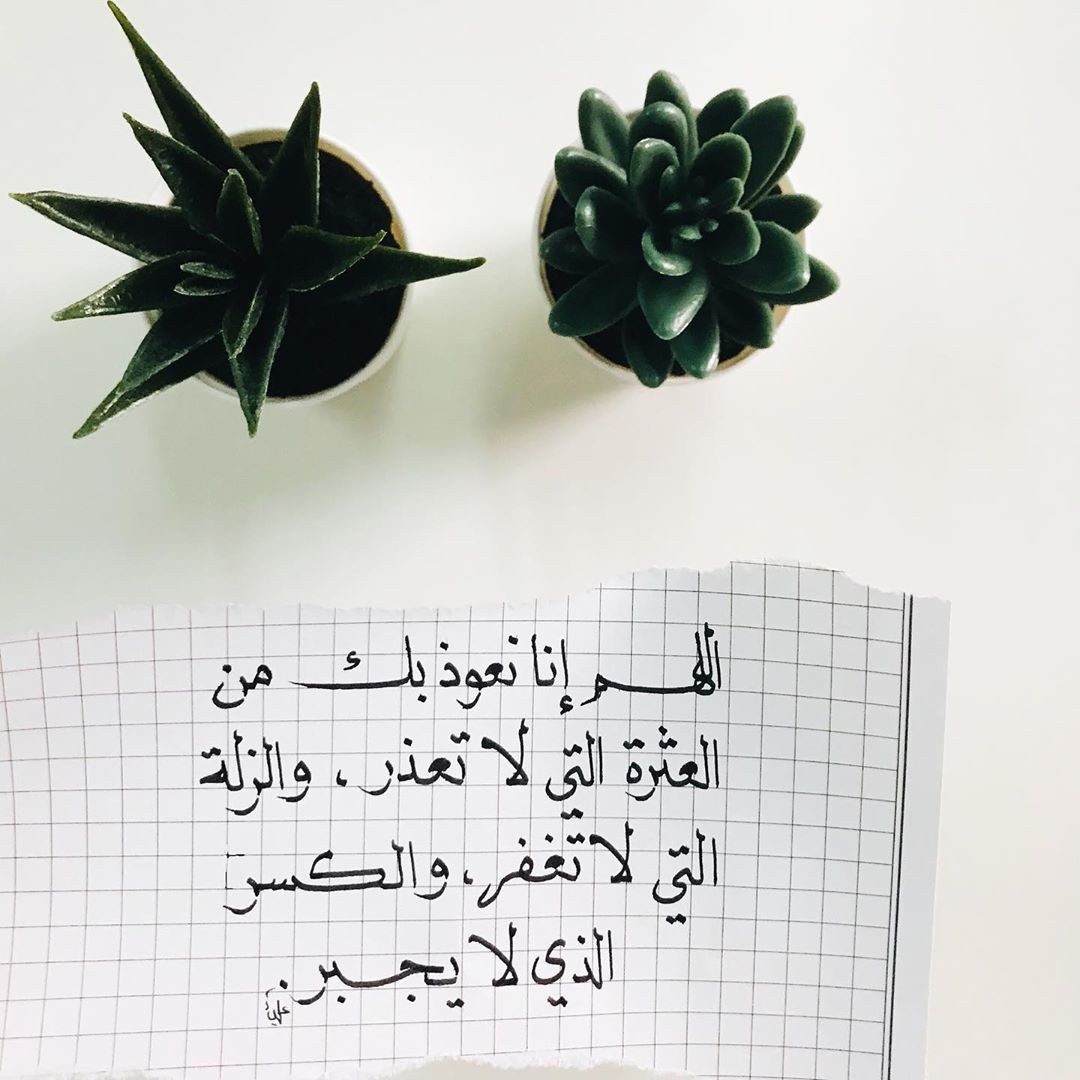 اللهم إنا نعوذ بك من
العثرة التي لا تعذر، والزلة
التي لا تغفر، والكسر
الذي لا يجبر.